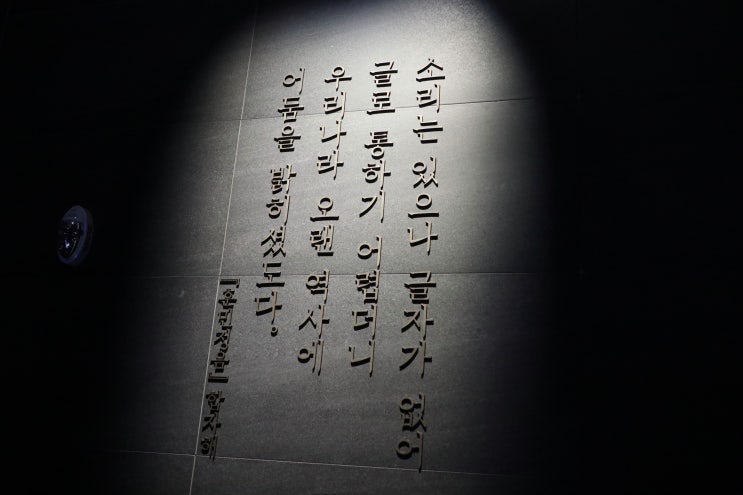 소리는 있으나 글자가 없어
글로 통하기 어렵더니
우리나라 오랜 역사에
어둠을 밝히셨도다.
『훈민정음』 해례본